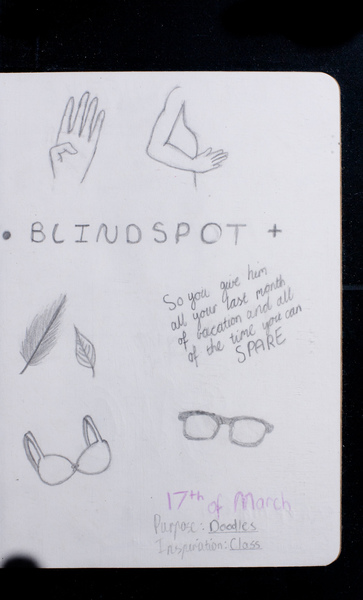 • BLINDSPOT +
So you give him
all your last month
of vacation and all
of the time you can
SPARE
17th of March
Purpose: Doodles
Inspiration: Class